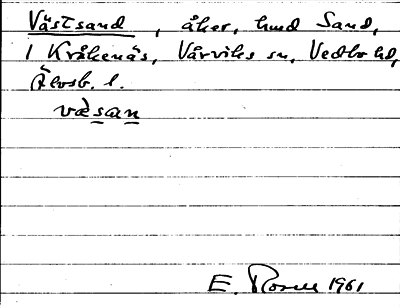 Västsand, åker, hmd Sand,
1 Kråkenäs, Vårviks sn, Vedbo hd,
Älvsb. l.
väsan
E. Rosell 1961